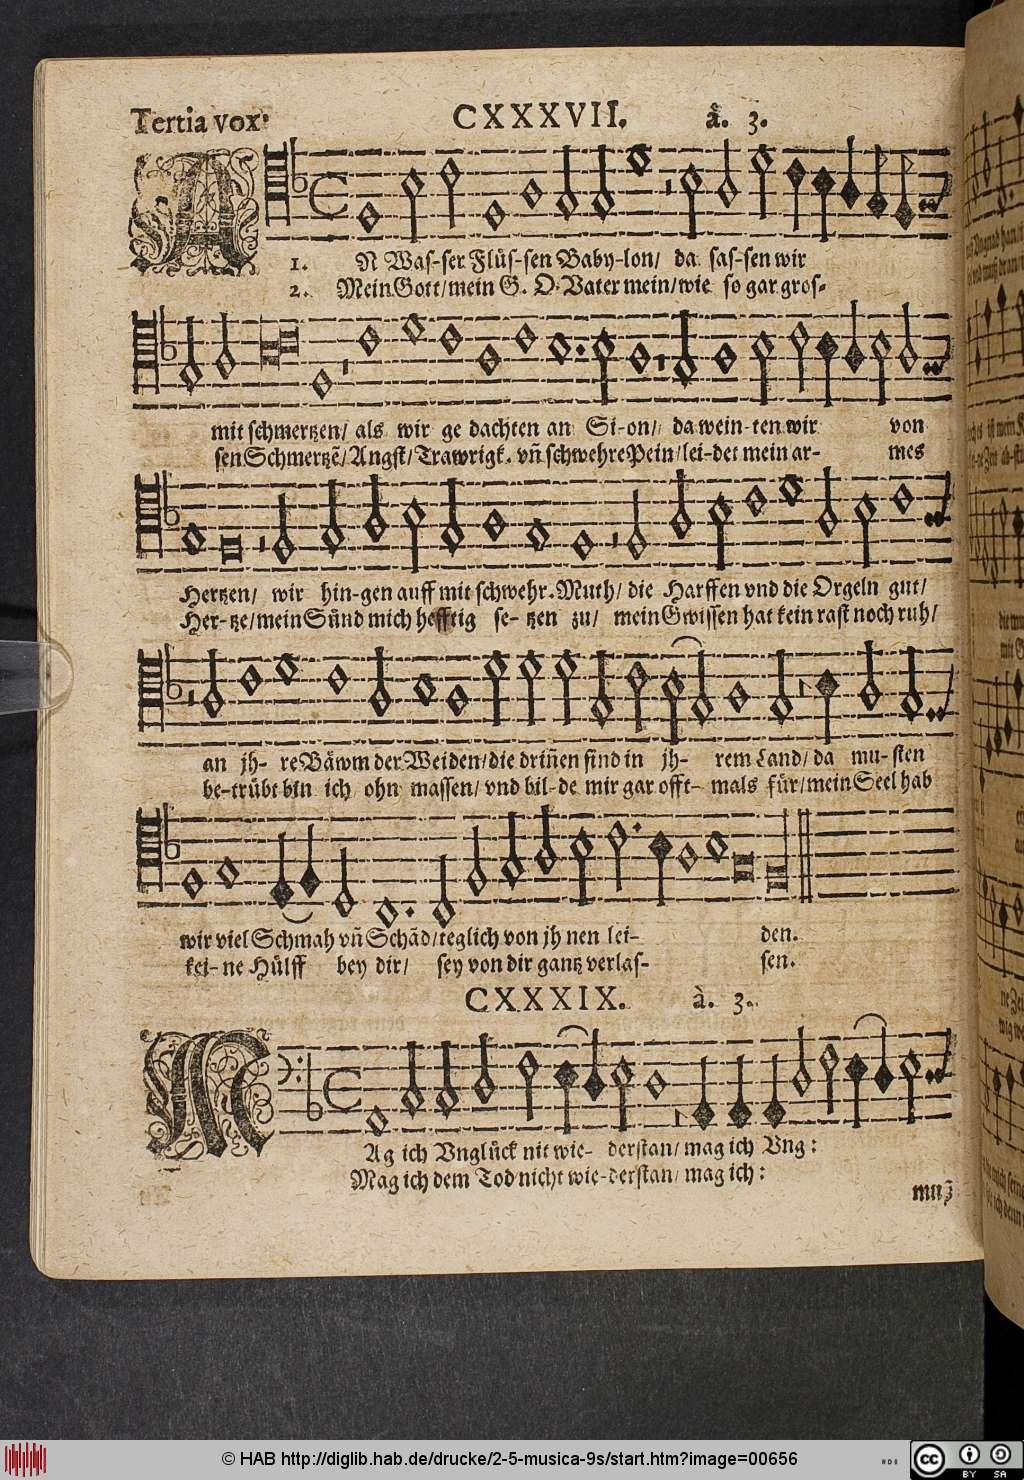 Tertia vox. CXXXVII. à. 3.
A
1. N Was-ser Flüs-sen Baby-lon/ da sas-sen wir
2. Mein Gott/ mein G. O Vater mein/ wie so gar gros-
mit schmertzen/ als wir ge dachten an Si-on/ da wein-ten wir von
sen Schmertzẽ/ Angst/ Trawrigk. vñ schwehre Pein/ lei-det mein ar- mes
Hertzen/ wir hin-gen auff mit schwehr. Muth/ die Harffen vnd die Orgeln gut/
Her-tze/ mein Sünd mich hefftig se-tzen zu/ mein Gwissen hat kein rast noch ruh/
an jh- re Bäwm der Weiden/ die driñen sind in jh- rem Land/ da mu-sten
be-trübt bin ich ohn massen/ vnd bil-de mir gar offt- mals für/ mein Seel hab
wir viel Schmah vñ Schãd/ teglich von jh nen lei- den.
kei-ne Hülff bey dir/ sey von dir gantz verlas- sen.
CXXXIX. à. 3.
M
Ag ich Vnglück nit wie- derstan/ mag ich Vng:
Mag ich dem Tod nicht wie-derstan/ mag ich:
muß
© HAB http://diglib.hab.de/drucke/2-5-musica-9s/start.htm?image=00656
cc BY SA